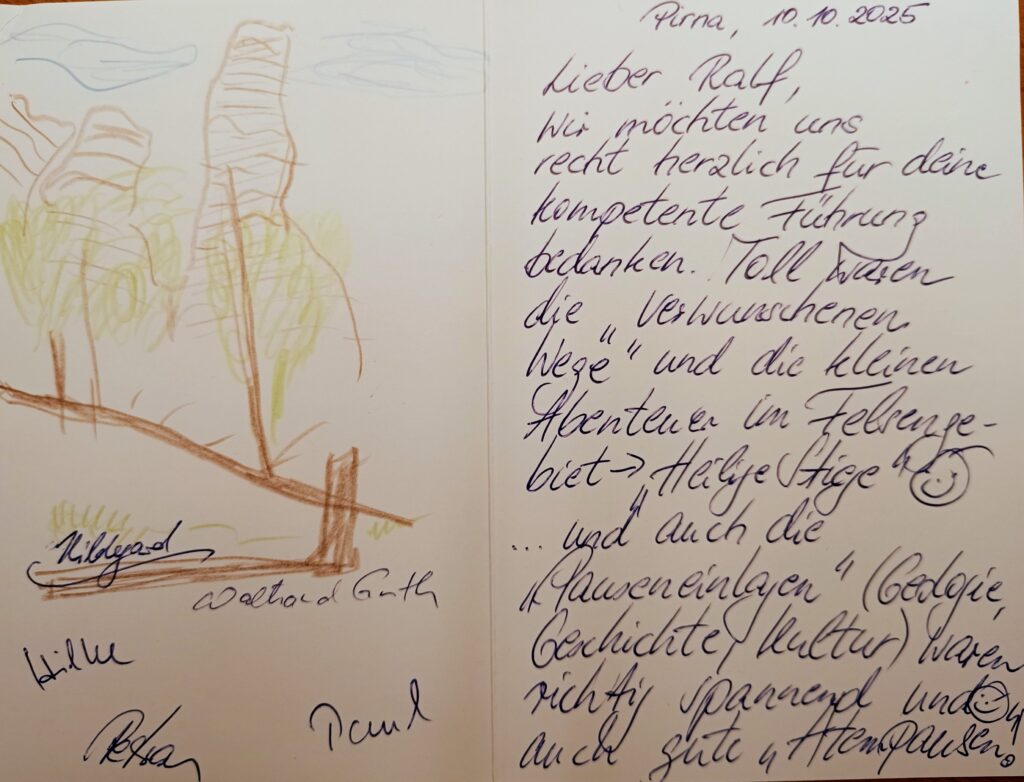 Pirna, 10.10.2025
Lieber Ralf,
wir möchten uns
recht herzlich für deine
kompetente Führung
bedanken. Toll waren
die „verwunschenen
Wege“ und die kleinen
Abenteuer im Felsenge-
biet → „Heilige Stige“ ☺
... und auch die
„Pauseneinlagen“ (Geologie,
Geschichte, Kultur) waren
richtig spannend und ☺
auch gute „Atempausen“.
Hildegard
Hilke
Petra
Paul